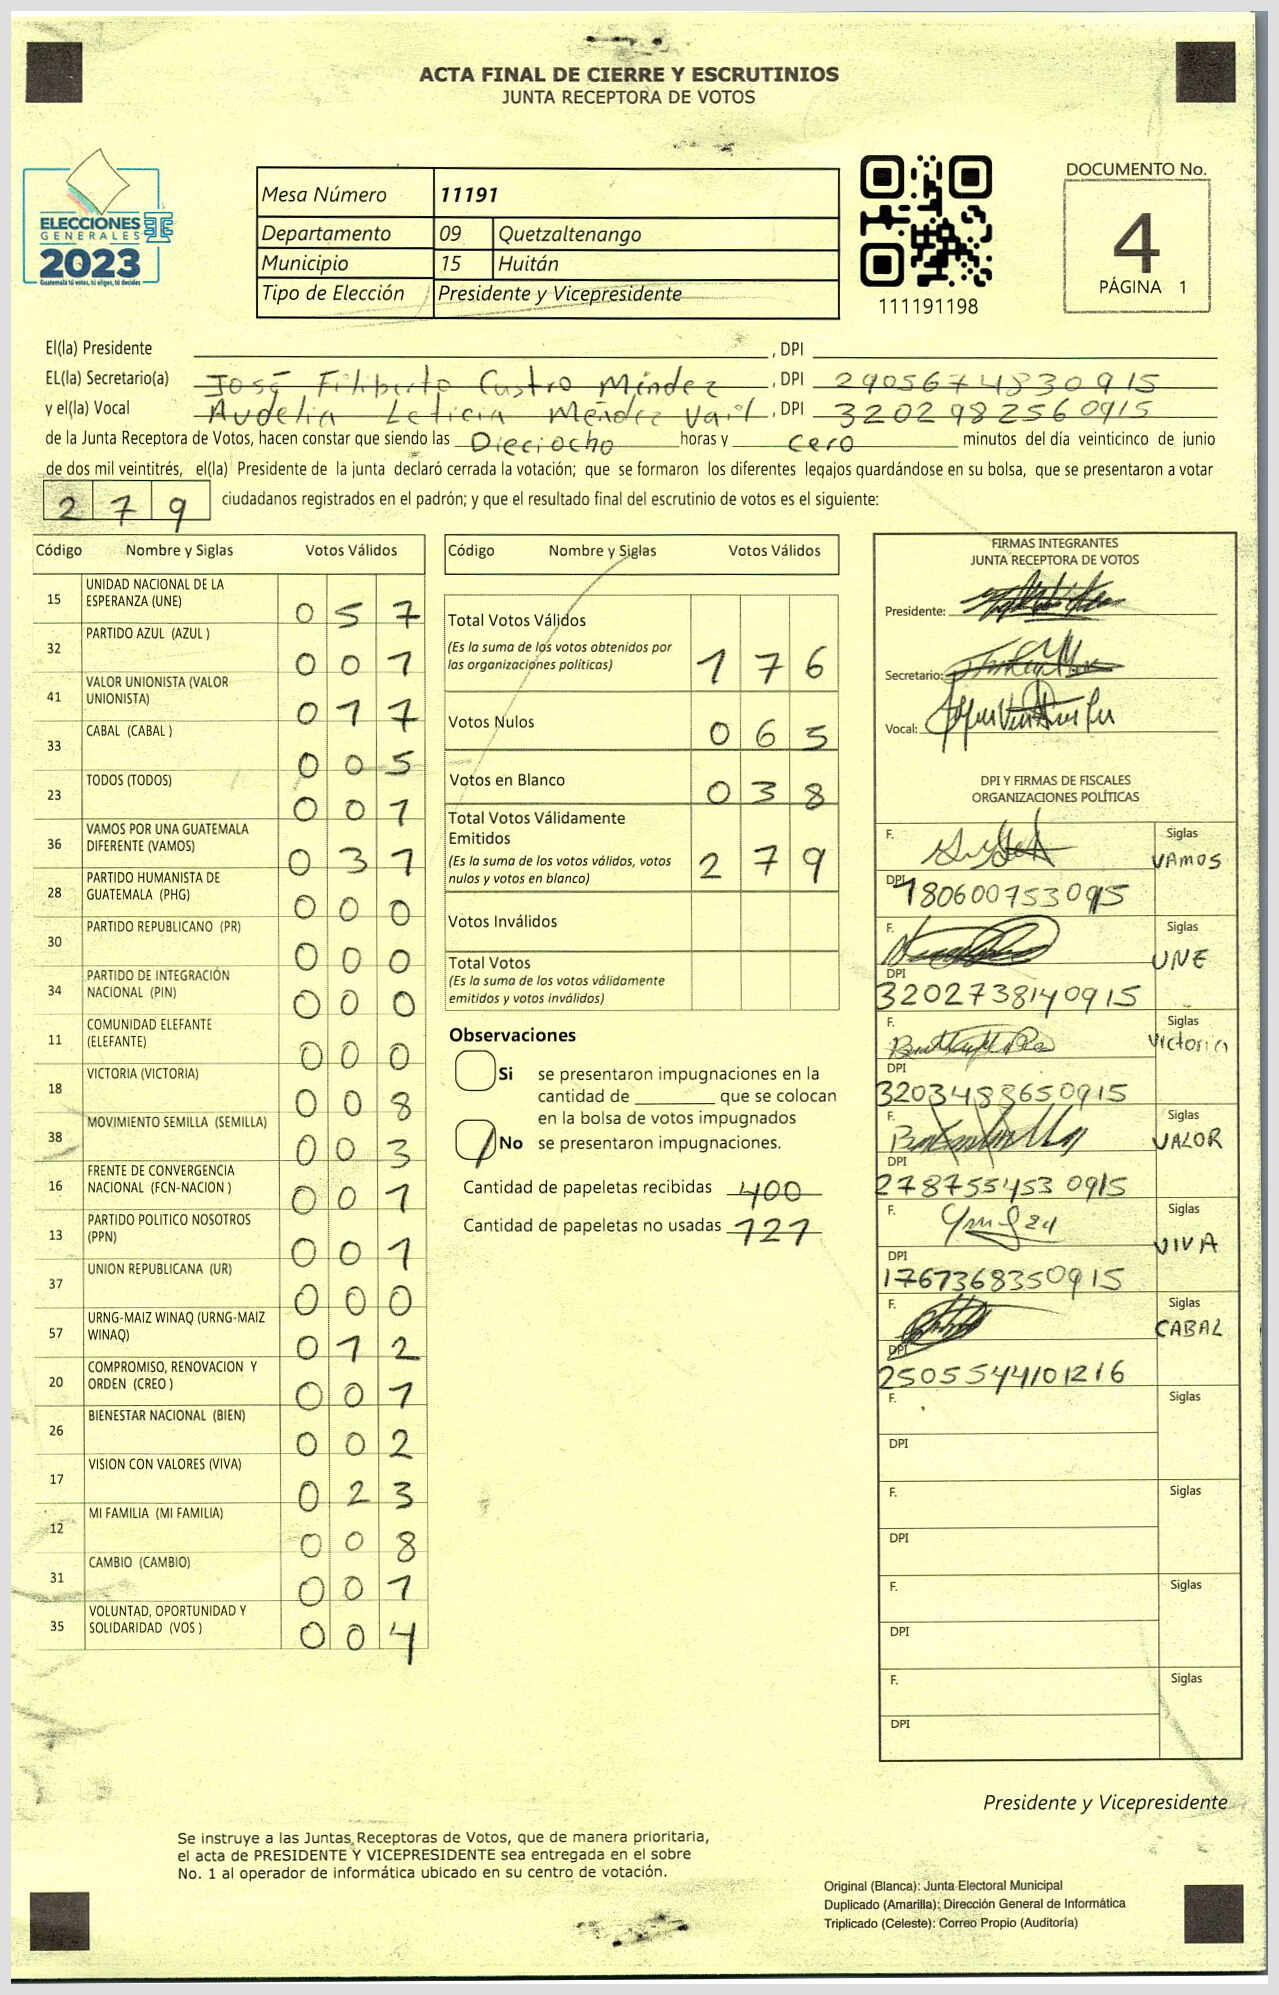 ACTA FINAL DE CIERRE Y ESCRUTINIOS
JUNTA RECEPTORA DE VOTOS
ELECCIONES
GENERALES
2023
Guatemala tú votas, tú eliges, tú decides
Mesa Número 11191
Departamento 09 Quetzaltenango
Municipio 15 Huitán
Tipo de Elección Presidente y Vicepresidente
111191198
DOCUMENTO No.
4
PÁGINA 1
El(la) Presidente , DPI
EL(la) Secretario(a) José Filiberto Castro Méndez , DPI 2905674830915
y el(la) Vocal Audelia Leticia Méndez Vail , DPI 3202982560915
de la Junta Receptora de Votos, hacen constar que siendo las Dieciocho horas y cero minutos del día veinticinco de junio
de dos mil veintitrés, el(la) Presidente de la junta declaró cerrada la votación; que se formaron los diferentes legajos quardándose en su bolsa, que se presentaron a votar
279 ciudadanos registrados en el padrón; y que el resultado final del escrutinio de votos es el siguiente:
Código Nombre y Siglas Votos Válidos
15 UNIDAD NACIONAL DE LA ESPERANZA (UNE) 057
32 PARTIDO AZUL (AZUL ) 001
41 VALOR UNIONISTA (VALOR UNIONISTA) 017
33 CABAL (CABAL ) 005
23 TODOS (TODOS) 001
36 VAMOS POR UNA GUATEMALA DIFERENTE (VAMOS) 031
28 PARTIDO HUMANISTA DE GUATEMALA (PHG) 000
30 PARTIDO REPUBLICANO (PR) 000
34 PARTIDO DE INTEGRACIÓN NACIONAL (PIN) 000
11 COMUNIDAD ELEFANTE (ELEFANTE) 000
18 VICTORIA (VICTORIA) 008
38 MOVIMIENTO SEMILLA (SEMILLA) 003
16 FRENTE DE CONVERGENCIA NACIONAL (FCN-NACION ) 001
13 PARTIDO POLITICO NOSOTROS (PPN) 001
37 UNION REPUBLICANA (UR) 000
57 URNG-MAIZ WINAQ (URNG-MAIZ WINAQ) 012
20 COMPROMISO, RENOVACION Y ORDEN (CREO ) 001
26 BIENESTAR NACIONAL (BIEN) 002
17 VISION CON VALORES (VIVA) 023
12 MI FAMILIA (MI FAMILIA) 008
31 CAMBIO (CAMBIO) 001
35 VOLUNTAD, OPORTUNIDAD Y SOLIDARIDAD (VOS ) 004
Código Nombre y Siglas Votos Válidos
Total Votos Válidos
(Es la suma de los votos obtenidos por
las organizaciones políticas) 176
Votos Nulos 065
Votos en Blanco 038
Total Votos Válidamente
Emitidos
(Es la suma de los votos válidos, votos
nulos y votos en blanco) 279
Votos Inválidos
Total Votos
(Es la suma de los votos válidamente
emitidos y votos inválidos)
Observaciones
Si se presentaron impugnaciones en la
cantidad de ________ que se colocan
en la bolsa de votos impugnados
No se presentaron impugnaciones.
Cantidad de papeletas recibidas 400
Cantidad de papeletas no usadas 121
FIRMAS INTEGRANTES
JUNTA RECEPTORA DE VOTOS
Presidente:
Secretario:
Vocal:
DPI Y FIRMAS DE FISCALES
ORGANIZACIONES POLÍTICAS
F. Siglas
VAMOS
DPI 1806007530915
F. Siglas
UNE
DPI
3202738140915
F. Siglas
Victoria
DPI
3203488650915
F. Siglas
VALOR
DPI
2787554530915
F. Siglas
VIVA
DPI
1767368350915
F. Siglas
CABAL
DPI
2505544101216
F. Siglas
DPI
F. Siglas
DPI
F. Siglas
DPI
F. Siglas
DPI
Presidente y Vicepresidente
Se instruye a las Juntas Receptoras de Votos, que de manera prioritaria,
el acta de PRESIDENTE Y VICEPRESIDENTE sea entregada en el sobre
No. 1 al operador de informática ubicado en su centro de votación.
Original (Blanca): Junta Electoral Municipal
Duplicado (Amarilla): Dirección General de Informática
Triplicado (Celeste): Correo Propio (Auditoría)